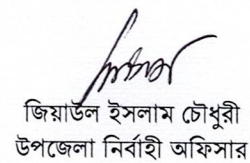 জিয়াউল ইসলাম চৌধুরী
উপজেলা নির্বাহী অফিসার